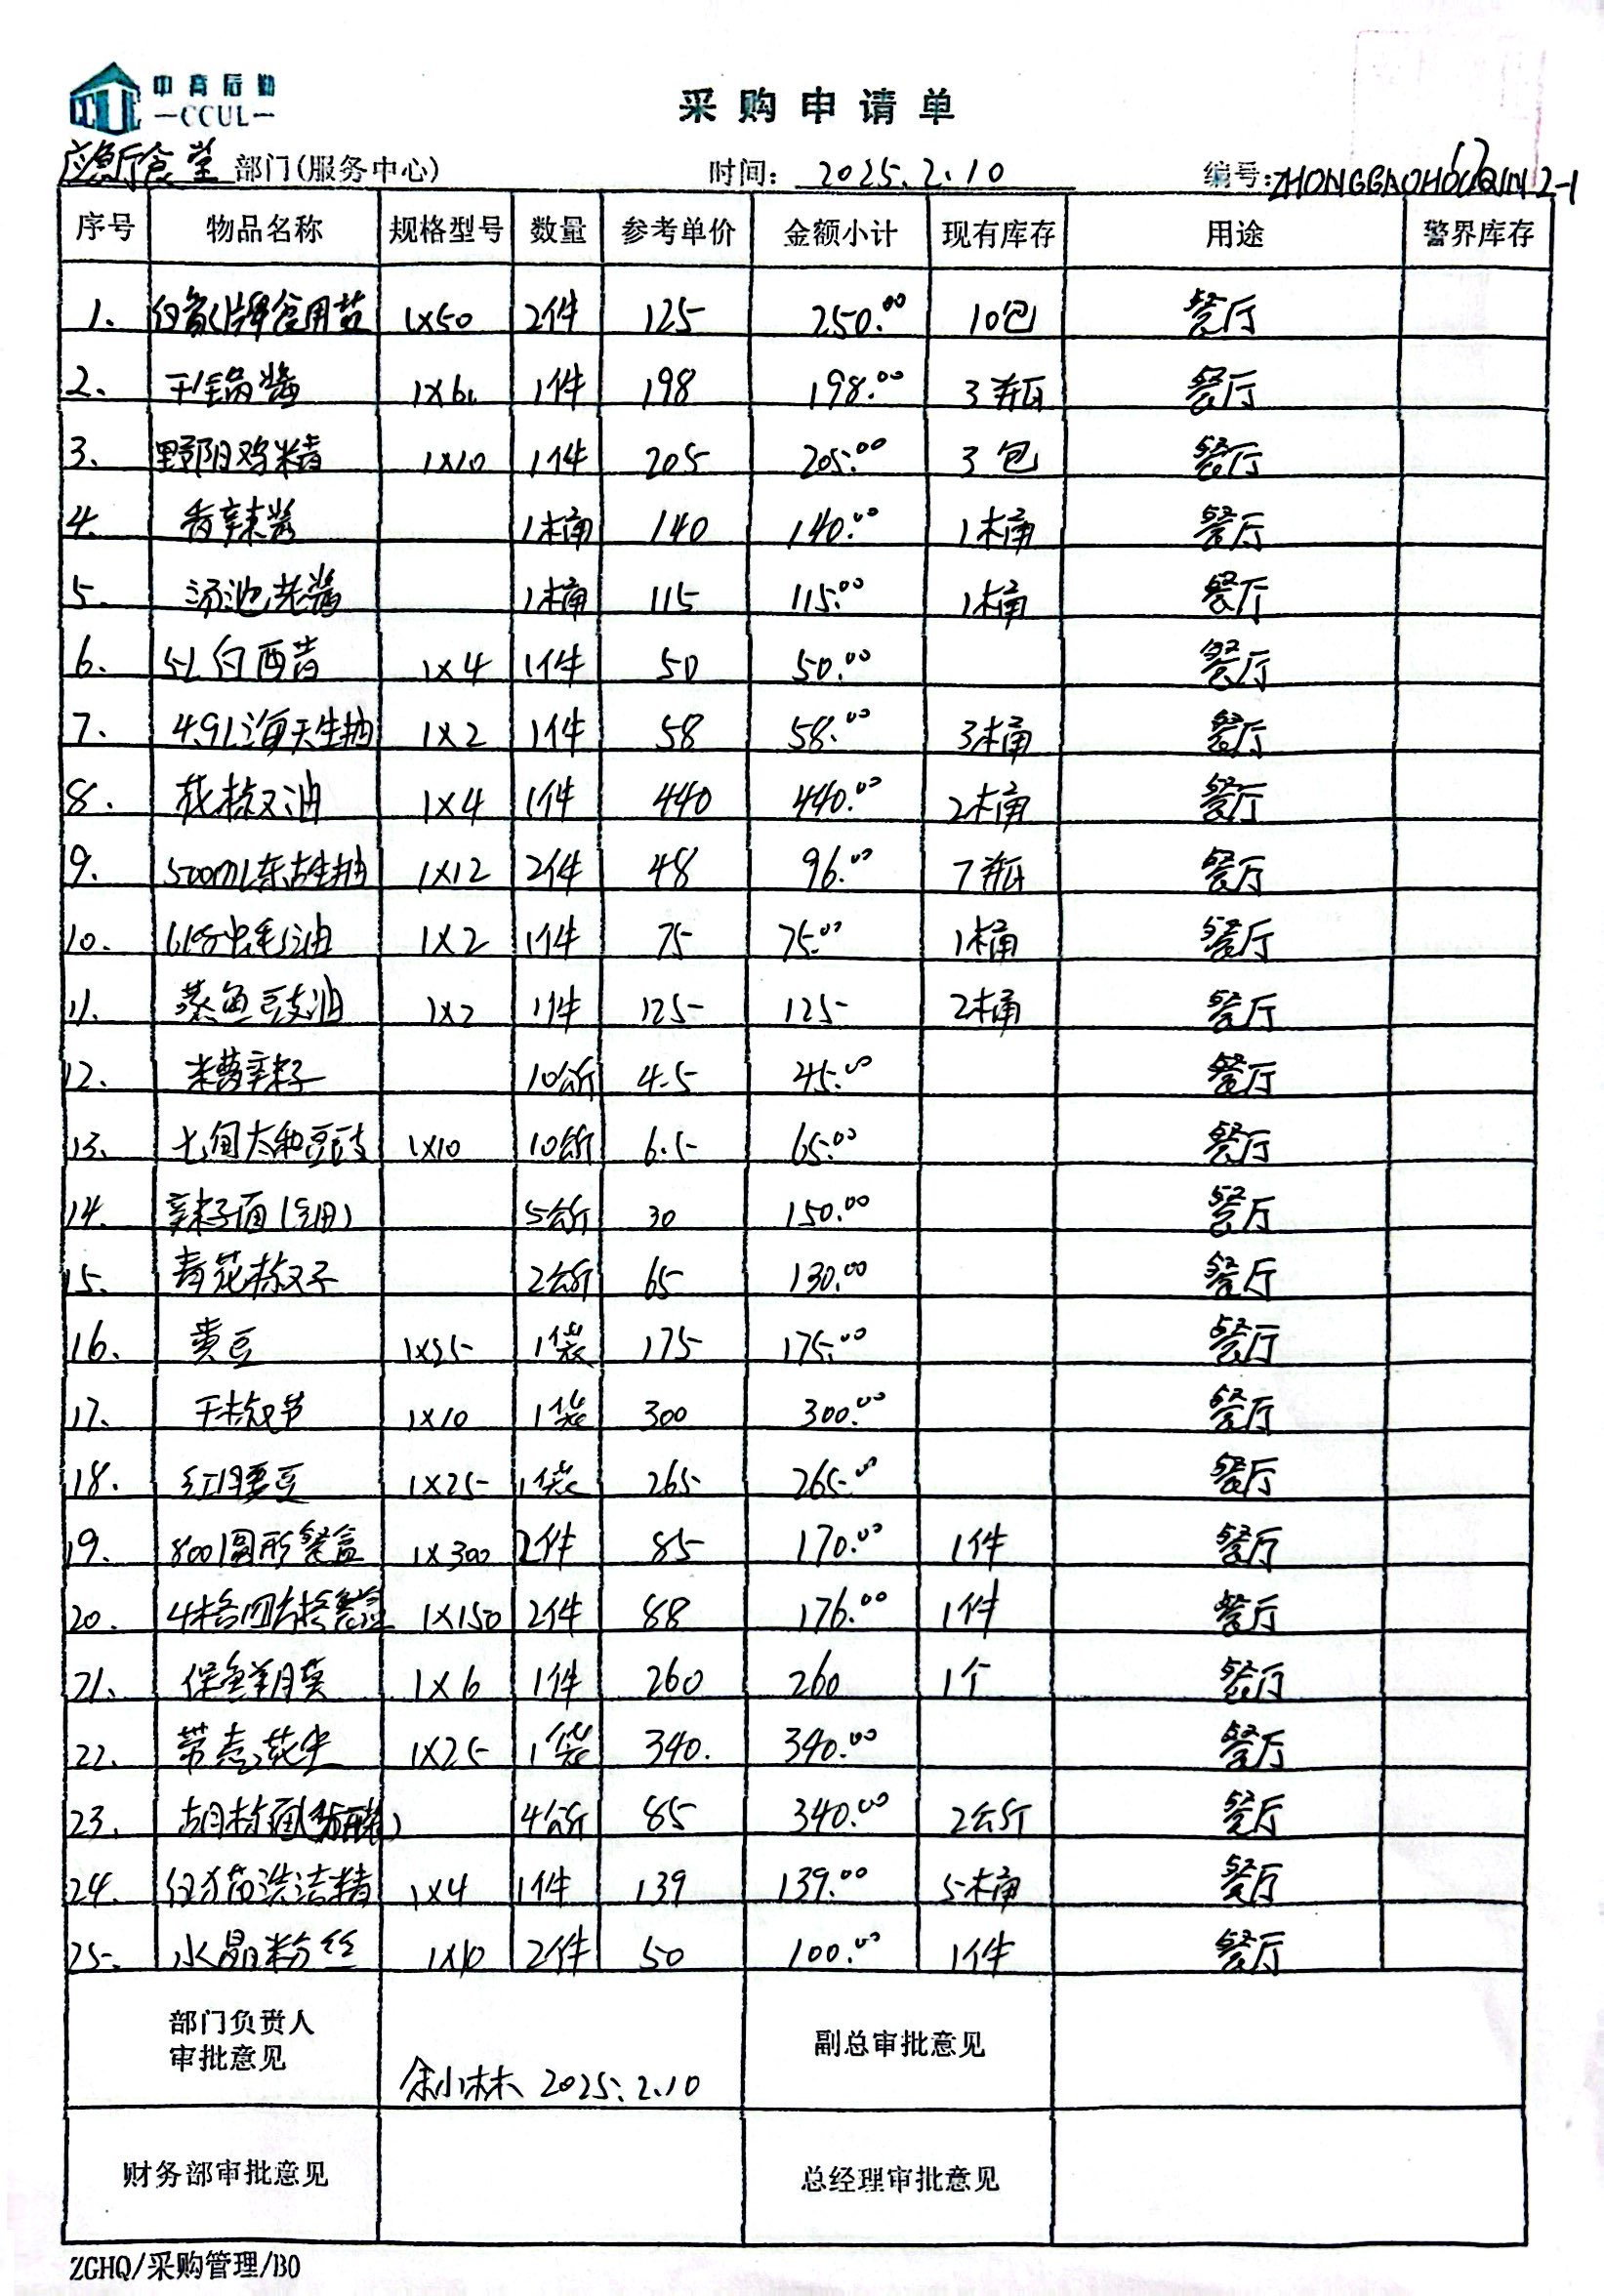 中高后勤
—CCUL—
采购申请单
应急厅食堂 部门(服务中心) 时间: 2025.2.10 编号:ZHONGGAOHOUQIN 2-1
序号 物品名称 规格型号 数量 参考单价 金额小计 现有库存 用途 警界库存
1、 白象牌食用盐 1x50 2件 125 250.00 10包 餐厅
2、 干锅酱 1x6 1件 198 198.00 3瓶 餐厅
3、 野阳鸡精 1x10 1件 205 205.00 3包 餐厅
4. 香辣酱 1桶 140 140.00 1桶 餐厅
5. 汤池老酱 1桶 115 115.00 1桶 餐厅
6. 5L白西昔 1x4 1件 50 50.00 餐厅
7、 4.9L海天生抽 1x2 1件 58 58.00 3桶 餐厅
8. 花椒油 1x4 1件 440 440.00 2桶 餐厅
9. 500ml东古生抽 1x12 2件 48 96.00 7瓶 餐厅
10. 蚝油 1x2 1件 75 75.00 1桶 餐厅
11. 蒸鱼豆豉油 1x2 1件 125 125 2桶 餐厅
12. 糟辣子 10公斤 4.5 45.00 餐厅
13、 太和豆豉 1x10 10公斤 6.5 65.00 餐厅
14. 辣子面 5公斤 30 150.00 餐厅
15. 青花椒子 2公斤 65 130.00 餐厅
16、 黄豆 1x25 1袋 175 175.00 餐厅
17. 干椒节 1x10 1袋 300 300.00 餐厅
18. 红腰豆 1x25 1袋 265 265.00 餐厅
19. 8001圆形餐盒 1x300 2件 85 170.00 1件 餐厅
20. 4格四方格餐盒 1x150 2件 88 176.00 1件 餐厅
21、 保鲜膜 1x6 1件 260 260 1个 餐厅
22. 带壳花生 1x25 1袋 340. 340.00 餐厅
23. 胡椒面 4公斤 85 340.00 2公斤 餐厅
24. 白猫洗洁精 1x4 1件 139 139.00 5桶 餐厅
25. 水晶粉丝 1x10 2件 50 100.00 1件 餐厅
部门负责人
审批意见
余小林 2025.2.10
副总审批意见
财务部审批意见 总经理审批意见
ZGHQ/采购管理/B0